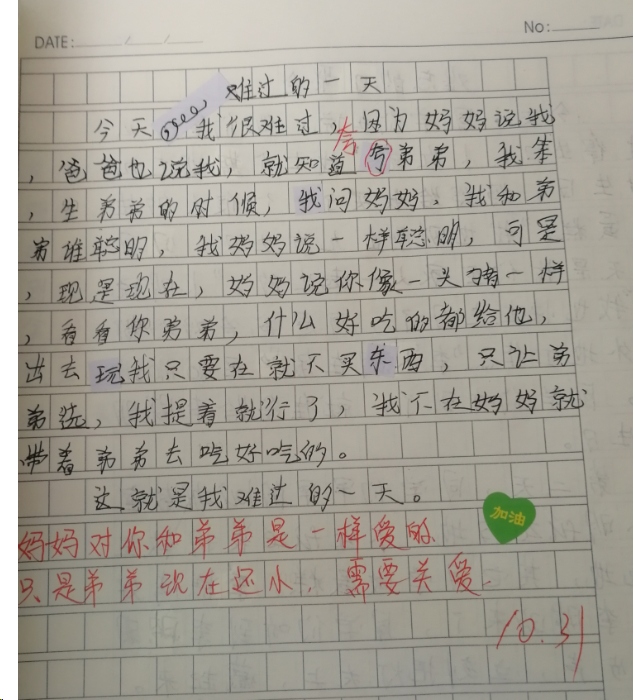 DATE: / /
No:
难过的一天
今天 我很难过，因为妈妈说我
，爸爸也说我，就知道夸弟弟，我笨
，生弟弟的时候，我问妈妈，我和弟
弟谁聪明，我妈妈说一样聪明，可是
，现是现在，妈妈说你像一头猪一样
，看看你弟弟，什么好吃的都给他，
出去玩我只要在就不买东西，只让弟
弟选，我提着就行了，我不在妈妈就
带着弟弟去吃好吃的。
这就是我难过的一天。
加油
妈妈对你和弟弟是一样爱的
只是弟弟现在还小．需要关爱．
10.31